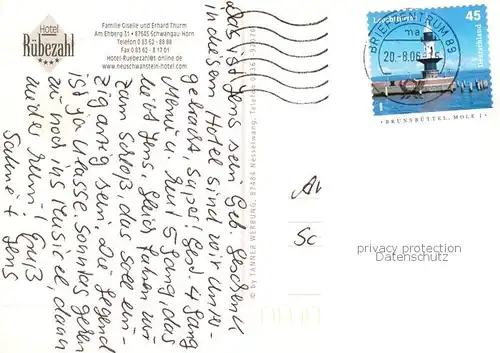 Hotel
Rübezahl
Familie Giselle und Erhard Thurm
Am Ehberg 31 • 87645 Schwangau-Horn
Telefon 0 83 62 - 88 88
Fax 0 83 62 - 8 17 01
Hotel-Ruebezahl@t-online.de
www.neuschwanstein-hotel.com
Das ist Jens sein Geb. Geschenk
in diesem Hotel sind wir unter-
gebracht, super! Gest. 4 Gang
Menü u. heut 5 Gang, das
liebt Jens. Gleich fahren wir
zum Schloß, das soll ein-
zigartig sein. Die Gegend
ist ja klasse. Sonntag gehen
wir noch ins Musical, dann
wieder heim! Gruß
Sabine + Jens
© by TANNER WERBUNG, 87484 Nesselwang, Telefon
An
Sc
BRIEFZENTRUM 89
20.-8.06
Leuchttürme
45
Deutschland
BRUNSBÜTTEL, MOLE 1
privacy protection
Datenschutz